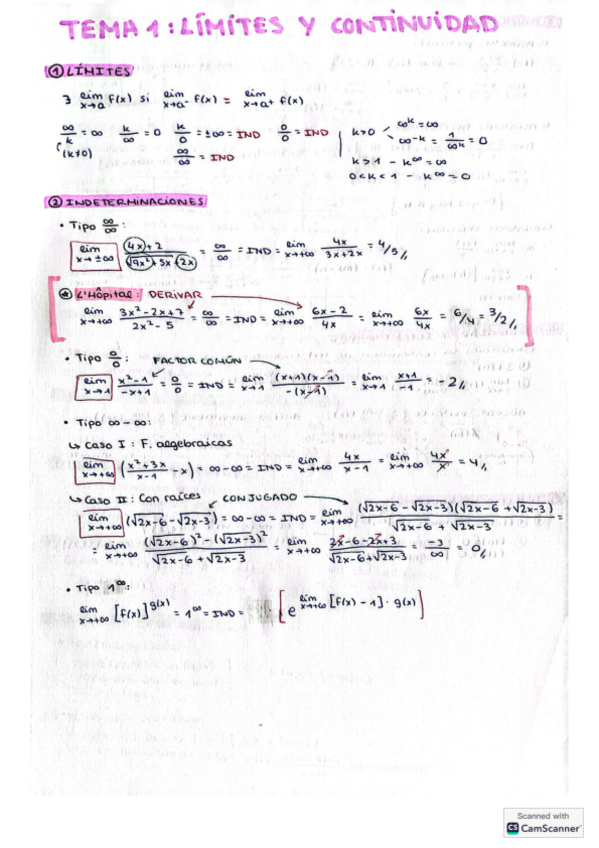 TEMA 1: LÍMITES Y CONTINUIDAD
① LÍMITES
∃ lim x→a f(x) si lim x→a⁻ f(x) = lim x→a⁺ f(x)
∞/k = ∞ (k≠0) k/∞ = 0 k/0 = ±∞ = IND 0/0 = IND
∞/∞ = IND
k>0 ∞^k = ∞
∞^-k = 1/∞^k = 0
k>1 - k^∞ = ∞
0<k<1 - k^∞ = 0
② INDETERMINACIONES
• Tipo ∞/∞:
lim x→±∞ (4x+2)/(√(9x²+5x) + 2x) = ∞/∞ = IND = lim x→+∞ 4x/(3x+2x) = 4/5//
L'Hôpital: DERIVAR
lim x→+∞ (3x²-2x+7)/(2x²-5) = ∞/∞ = IND = lim x→+∞ (6x-2)/4x = lim x→+∞ 6x/4x = 6/4 = 3/2//
• Tipo 0/0: FACTOR COMÚN
lim x→1 (x²-1)/(-x+1) = 0/0 = IND = lim x→1 (x+1)(x-1)/-(x-1) = lim x→1 (x+1)/-1 = -2//
• Tipo ∞-∞:
↳ Caso I: F. algebraicas
lim x→+∞ ((x²+3x)/(x-1) - x) = ∞-∞ = IND = lim x→+∞ 4x/(x-1) = lim x→+∞ 4x/x = 4//
↳ Caso II: Con raíces CONJUGADO
lim x→+∞ (√(2x-6) - √(2x-3)) = ∞-∞ = IND = lim x→+∞ (√(2x-6) - √(2x-3))(√(2x-6) + √(2x-3))/(√(2x-6) + √(2x-3)) =
= lim x→+∞ ((√(2x-6))² - (√(2x-3))²)/(√(2x-6) + √(2x-3)) = lim x→+∞ (2x-6-2x+3)/(√(2x-6)+√(2x-3)) = -3/∞ = 0//
• Tipo 1^∞:
lim x→+∞ [f(x)]^g(x) = 1^∞ = IND = [e^(lim x→+∞ [f(x)-1]·g(x))]
Scanned with
CS CamScanner